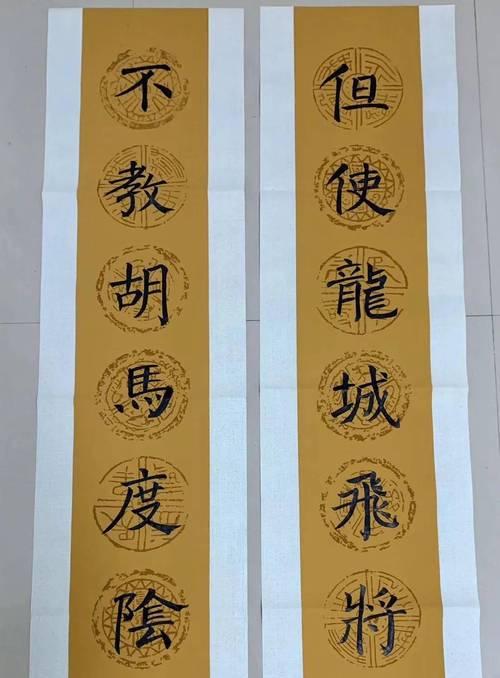 但使龍城飛將
不教胡馬度陰